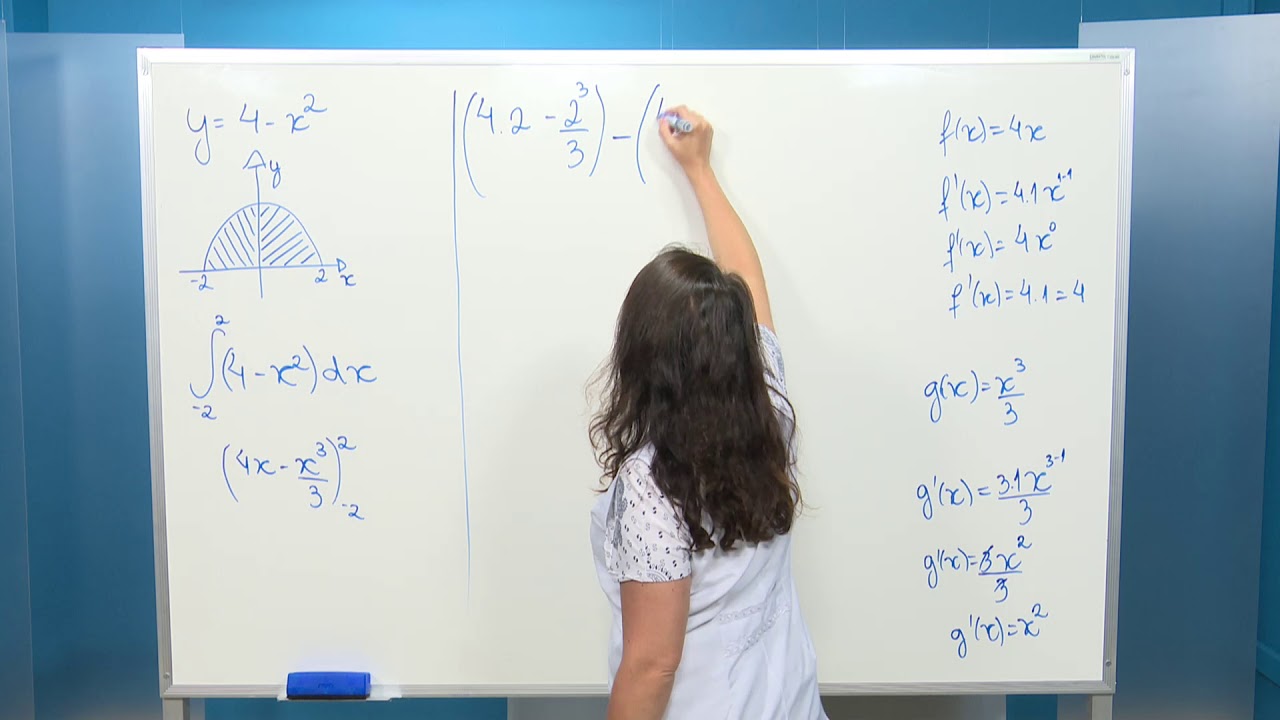 y = 4 - x²
y
-2 2 x
∫₋₂² (4 - x²) dx
(4x - x³/3)²₋₂
(4.2 - 2³/3) - (4
f(x) = 4x
f'(x) = 4.1x¹⁻¹
f'(x) = 4x⁰
f'(x) = 4.1 = 4
g(x) = x³/3
g'(x) = 3.1x³⁻¹/3
g'(x) = 3x²/3
g'(x) = x²